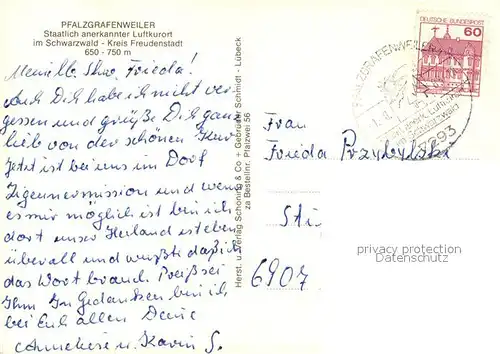 PFALZGRAFENWEILER
Staatlich anerkannter Luftkurort
im Schwarzwald - Kreis Freudenstadt
650 - 750 m
Frieda!
Auch Dich habe ich nicht ver
gessen und grüße Dich ganz
lieb von der schönen Kur
Jetzt ist bei uns im Dorf
Zigeunermission und wenn
es mir möglich ist bin ich
dort unser Heiland ist eben
überall und wußte daß ich
das Wort brauch. Preiß sei
Ihm In Gedanken bin ich
bei Euch allen Deine
Anneliese u. Karin S.
Herst. u. Verlag Schöning & Co + Gebrüder Schmidt · Lübeck
za Bestellnr. Pfalzwei 56
DEUTSCHE BUNDESPOST
60
PFALZGRAFENWEILER
7293
Frau
Frieda Przybylski
Sti
6907
privacy protection
Datenschutz